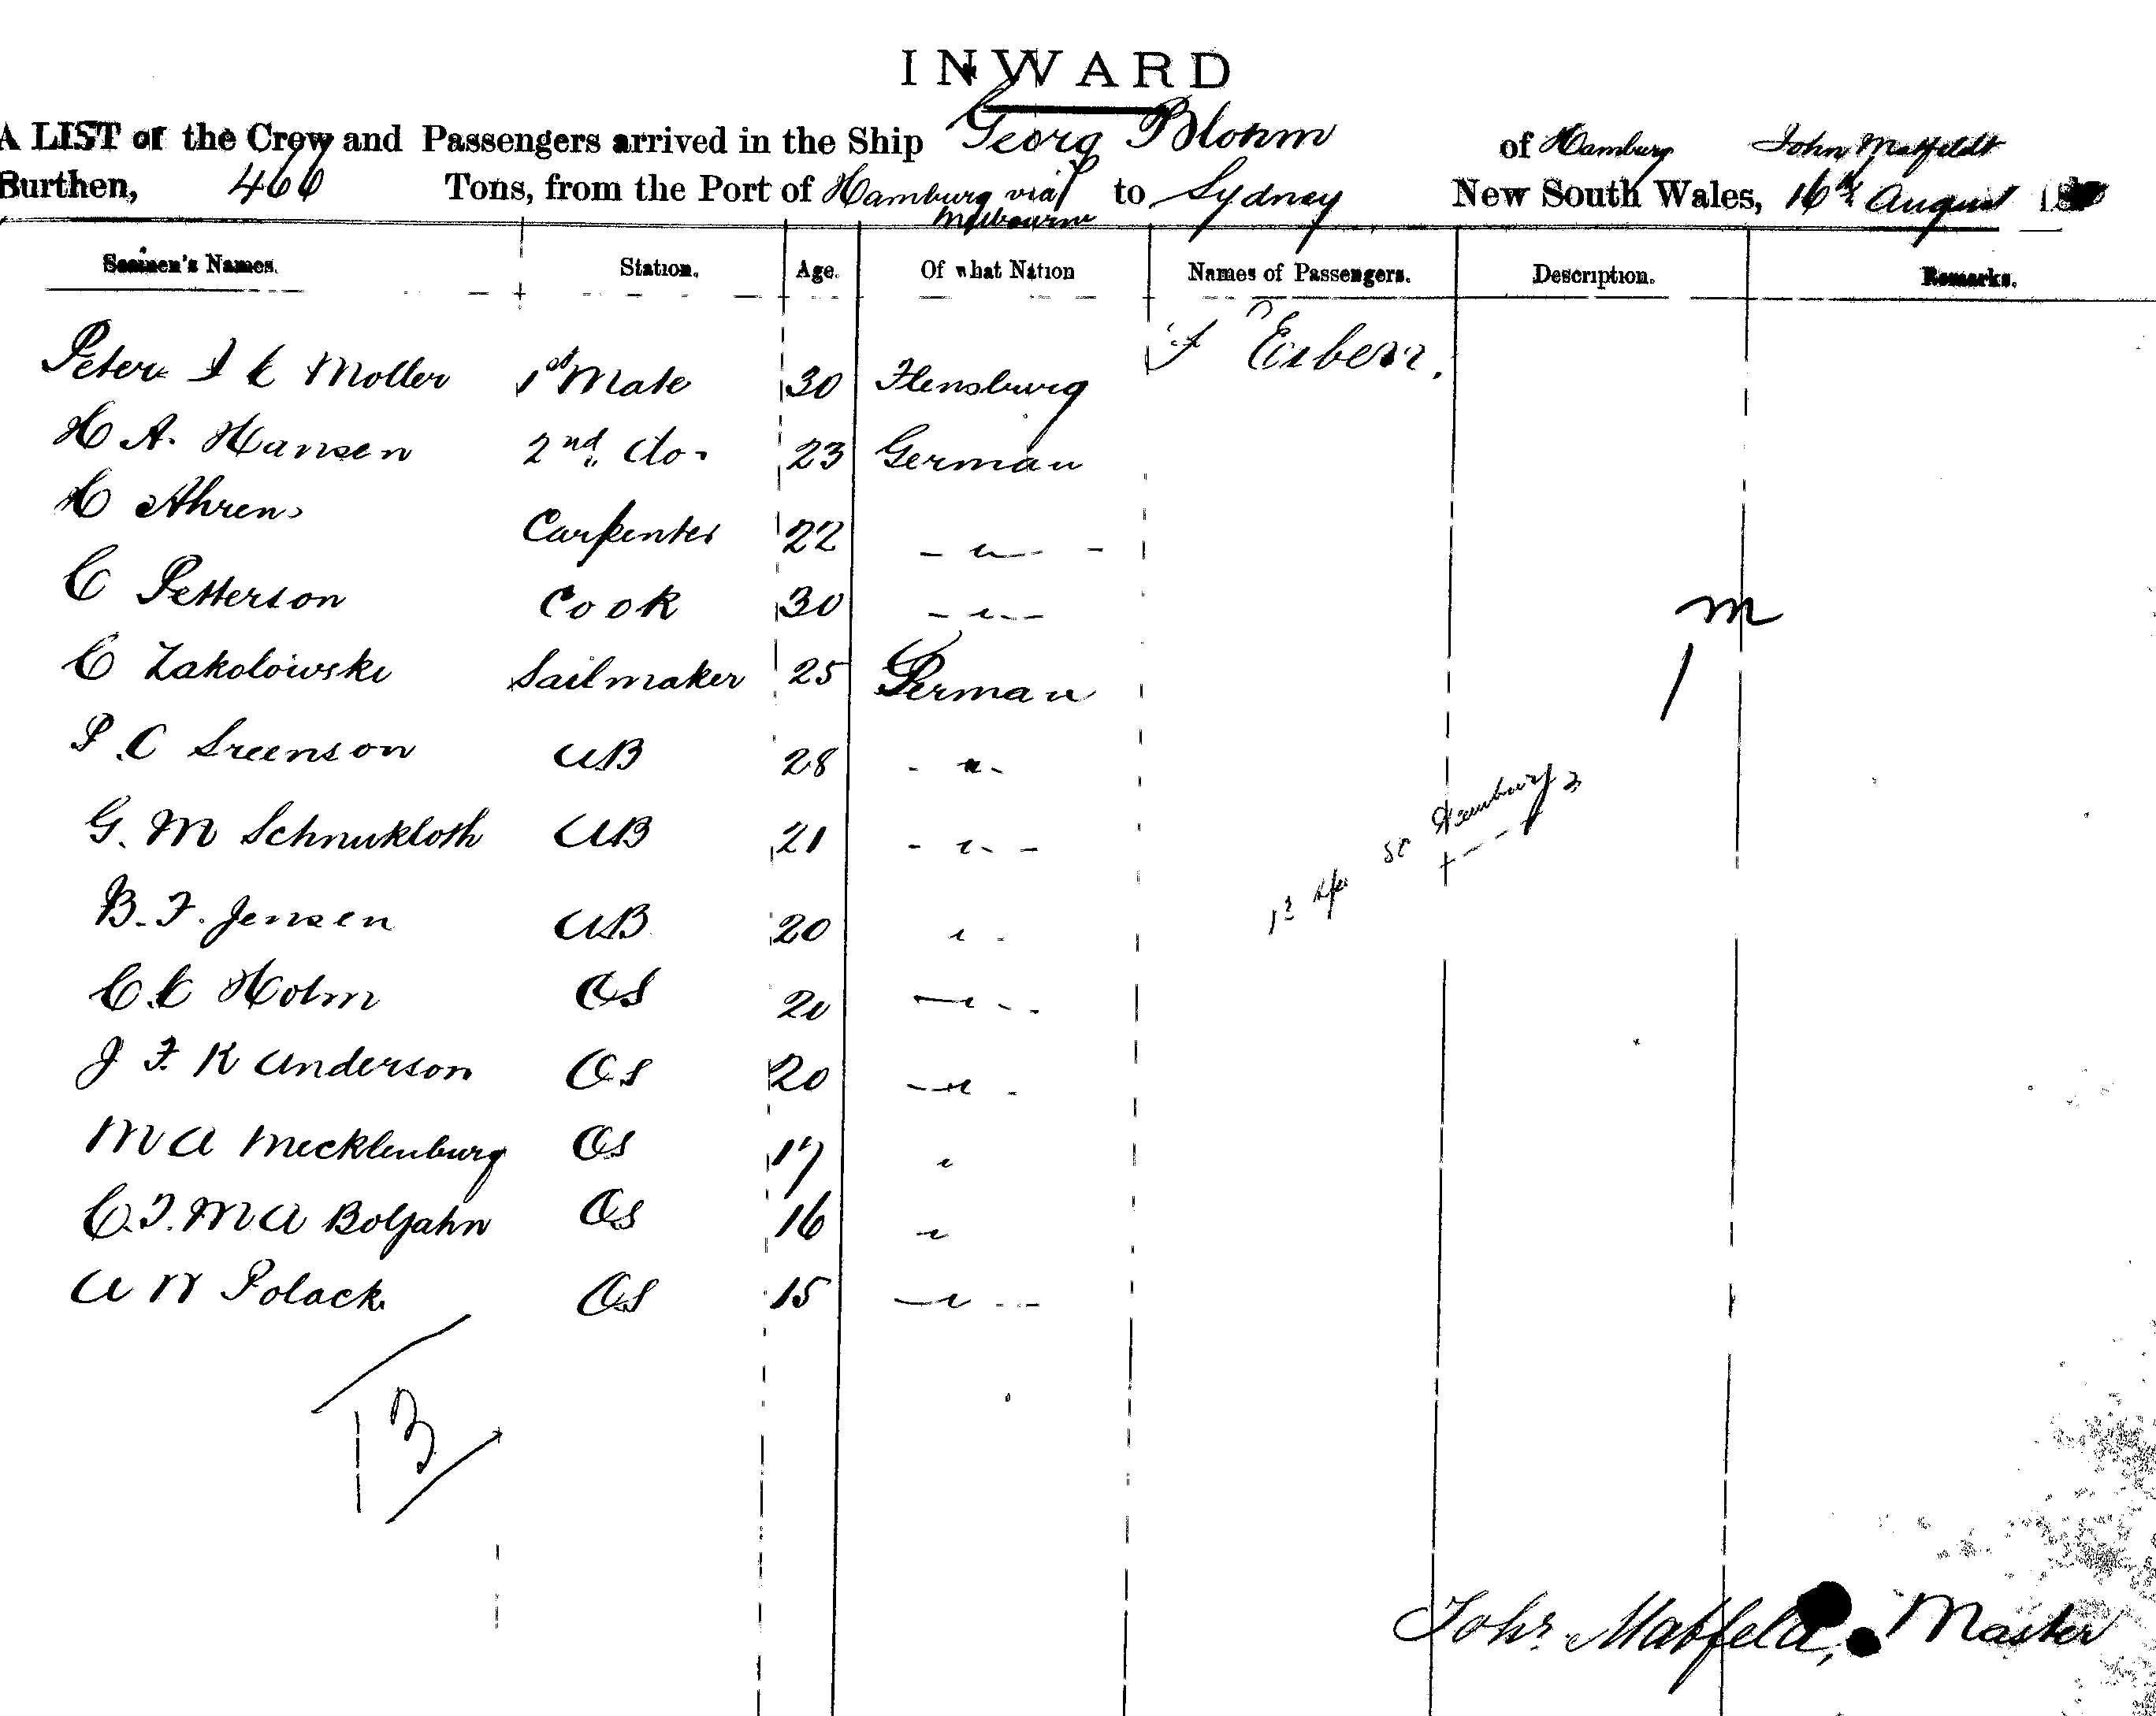 INWARD
A LIST of the Crew and Passengers arrived in the Ship Georg Blohm of Hamburg John Matfeldt
Burthen, 466 Tons, from the Port of Hamburg via Melbourne to Sydney New South Wales, 16th August
Seamen's Names. Station. Age. Of what Nation Names of Passengers. Description. Remarks.
Peter Moller 1st Mate 30 Flensburg Eiben.
H A. Hansen 2nd do. 23 German
H Ahrens Carpenter 22 - " -
C Petterson Cook 30 - " -
C Zakolowski Sailmaker 25 German
P. C Sreenson AB 28 - " -
G. M Schnukloth AB 21 - " -
B. F. Jensen AB 20 "
C. C Holm OS 20 - " -
J F. K Anderson OS 20 - " -
M A Mecklenburg OS 17 "
C. F. M A Boljahn OS 16 "
A N Polack OS 15 - " -
m
1
Hamburg
13
Johs. Matfeld, Master